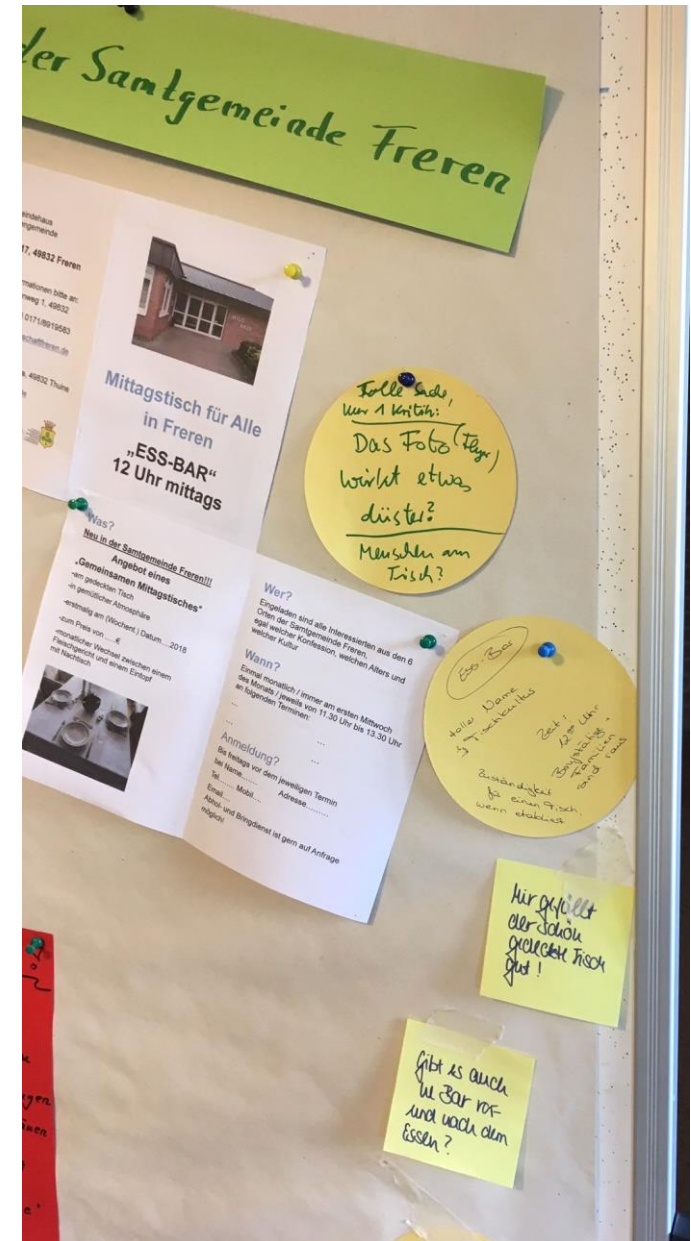 der Samtgemeinde Freren
17, 49832 Freren
mationen bitte an:
nweg 1, 49832
0171/8919583
, 49832 Thuine
Mittagstisch für Alle
in Freren
„ESS-BAR“
12 Uhr mittags
Tolle Sache,
nur 1 Kritik:
Das Foto (Flyer)
wirkt etwas
düster?
Menschen am
Tisch?
Was?
Neu in der Samtgemeinde Freren!!!
Angebot eines
„Gemeinsamen Mittagstisches“
-am gedeckten Tisch
-in gemütlicher Atmosphäre
-erstmalig am (Wochent.) Datum....2018
-zum Preis von .....€
-monatlicher Wechsel zwischen einem
Fleischgericht und einem Eintopf
mit Nachtisch
Wer?
Eingeladen sind alle Interessierten aus den 6
Orten der Samtgemeinde Freren,
egal welcher Konfession, welchen Alters und
welcher Kultur
Wann?
Einmal monatlich / immer am ersten Mittwoch
des Monats / jeweils von 11.30 Uhr bis 13.30 Uhr
an folgenden Terminen:
...
...
...
Anmeldung?
Bis freitags vor dem jeweiligen Termin
bei Name......
Adresse.........
Tel....... Mobil....
Email....
Abhol- und Bringdienst ist gern auf Anfrage
möglich!
Ess-Bar
toller Name
Tischkultur
Zeit!
12°° Uhr
Familien
sind raus
Zuständigkeit
für einen Tisch,
wenn etabliert
Mir gefällt
der schön
gedeckte Tisch
gut!
Gibt es auch
ne Bar vor
und nach dem
Essen?